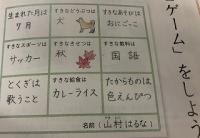 ゲーム」をしよう
生まれた月は
7月
すきなどうぶつは
犬
すきなあそびは
おにごっこ
すきなスポーツは
サッカー
すきなきせつは
秋
すきな教科は
国語
とくぎは
歌うこと
すきな給食は
カレーライス
たからものは
色えんぴつ
名前(山村はるな)